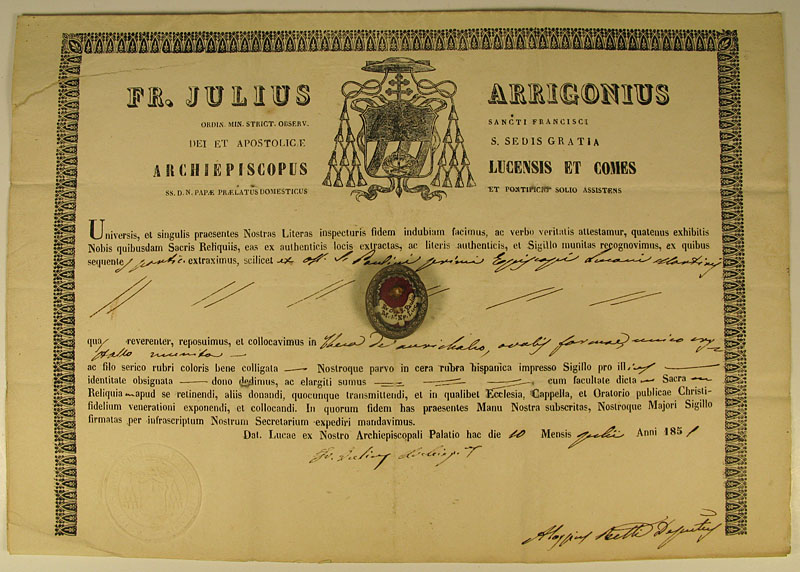 FR. JULIUS ARRIGONIUS
ORDIN. MIN. STRICT. OBSERV. SANCTI FRANCISCI
DEI ET APOSTOLICÆ S. SEDIS GRATIA
ARCHIEPISCOPUS LUCENSIS ET COMES
SS. D. N. PAPÆ PRÆLATUS DOMESTICUS ET PONTIFICIO SOLIO ASSISTENS
Universis, et singulis praesentes Nostras Literas inspecturis fidem indubiam facimus, ac verbo veritatis attestamur, quatenus exhibitis
Nobis quibusdam Sacris Reliquiis, eas ex authenticis locis extractas, ac literis authenticis, et Sigillo munitas recognovimus, ex quibus
sequentes partic. extraximus, scilicet ex Oss. S. Paulini primi Episcopi Lucani Martiris
qua reverenter, reposuimus, et collocavimus in theca de aurichalco, ovalis formae, unico cry
stallo munita
ac filo serico rubri coloris bene colligata Nostroque parvo in cera rubra hispanica impresso Sigillo pro illius
identitate obsignata dono dedimus, ac elargiti sumus cum facultate dicta Sacra
Reliquia apud se retinendi, aliis donandi, quocunque transmittendi, et in qualibet Ecclesia, Cappella, et Oratorio publicae Christi-
fidelium venerationi exponendi, et collocandi. In quorum fidem has praesentes Manu Nostra subscritas, Nostroque Majori Sigillo
firmatas per infrascriptum Nostrum Secretarium expediri mandavimus.
Dat. Lucae ex Nostro Archiepiscopali Palatio hac die 10 Mensis Julii Anni 1851
Fr. Julius Archiep.
Aloysius